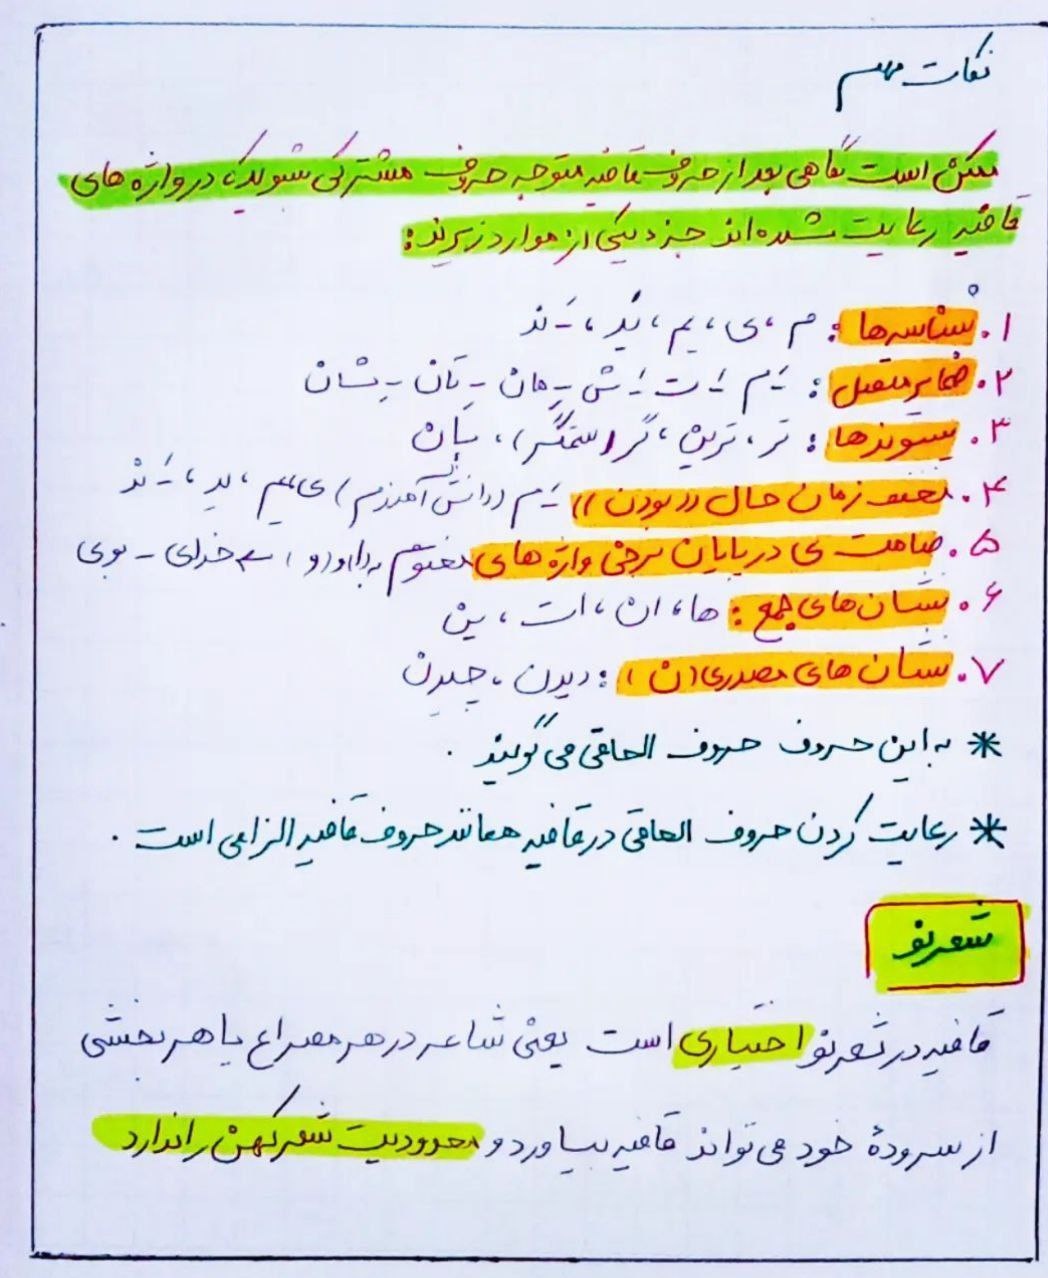 نکات مهم
ممکن است گاهی بعد از حروف قافیه متوجه حروف مشترکی شوید که در واژه های
قافیه رعایت شده اند جزء یکی از موارد زیرند:
۱. شناسه‌ها: م ، ی ، یم ، ید ، ـَ ند
۲. ضمایر متصل: ـَ م ـَ ت ـَ ش ـِ مان - تان - شان
۳. پسوندها: تر ، ترین ، گر (ستمگر) ، بان
۴. مخفف زمان حال (( بودن )) ـَ م (دانش آموزم) ی ، یم ، ید ، ـَ ند
۵. صامت ی در پایان برخی واژه های مختوم به (ا) و (و) ← خدای - بوی
۶. نشان های جمع: ها ، ان ، ات ، ین
۷. نشان های مصدری (ن): دیدن ، چیدن
* به این حروف حروف الحاقی می گویند .
* رعایت کردن حروف الحاقی در قافیه همانند حروف قافیه الزامی است .
شعر نو
قافیه در شعر نو اختیاری است یعنی شاعر در هر مصراع یا هر بخشی
از سرودهٔ خود می تواند قافیه بیاورد و محدودیت شعر کهن را ندارد